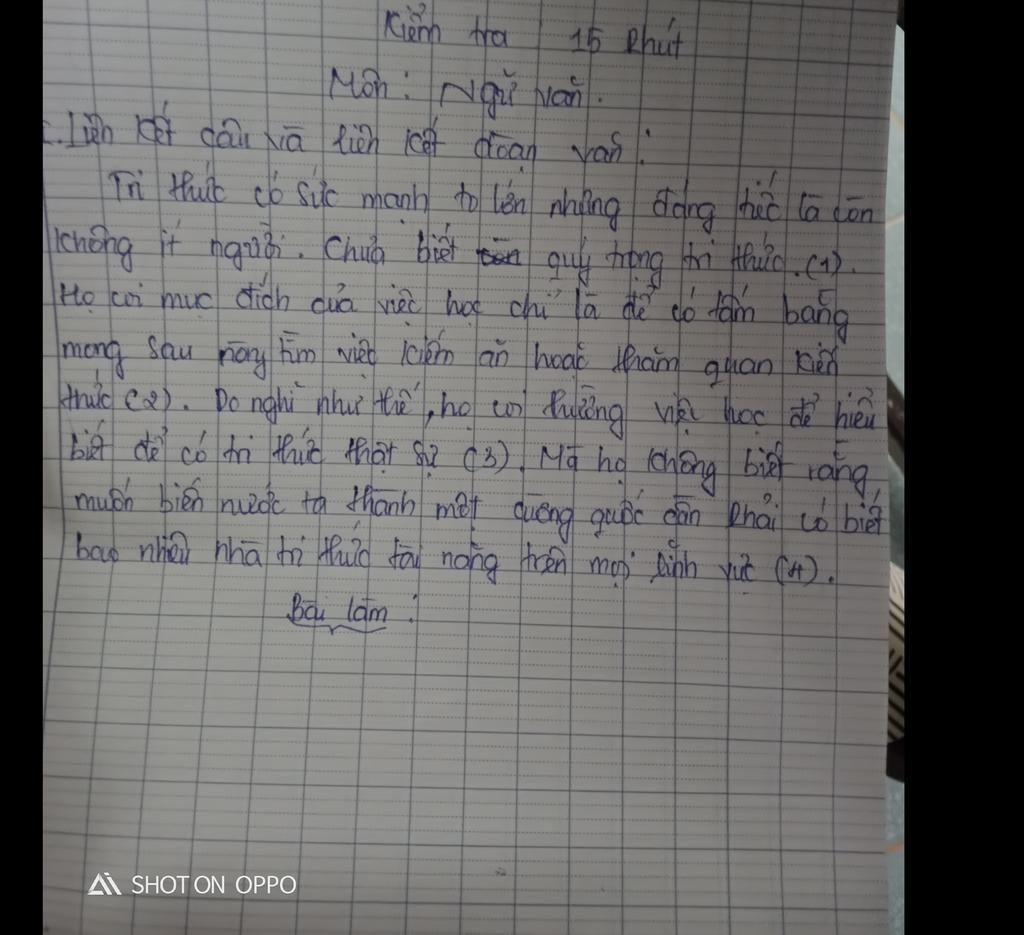 Kiểm tra 15 Phút
Môn: Ngữ văn.
Liên kết câu và liên kết đoạn văn:
Tri thức có sức mạnh to lớn nhưng đáng tiếc là còn
không ít người. Chưa biết quý trọng tri thức. (1).
Họ coi mục đích của việc học chỉ là để có tấm bằng
mong sau này tìm việc kiếm ăn hoặc thăm quan kiến
thức (2). Do nghĩ như thế, họ coi thường việc học để hiểu
biết để có tri thức thật sự (3). Mà họ không biết rằng
muốn biến nước ta thành một cường quốc cần Phải có biết
bao nhiêu nhà tri thức tài năng trên mọi lĩnh vực (4).
Bài làm:
SHOT ON OPPO